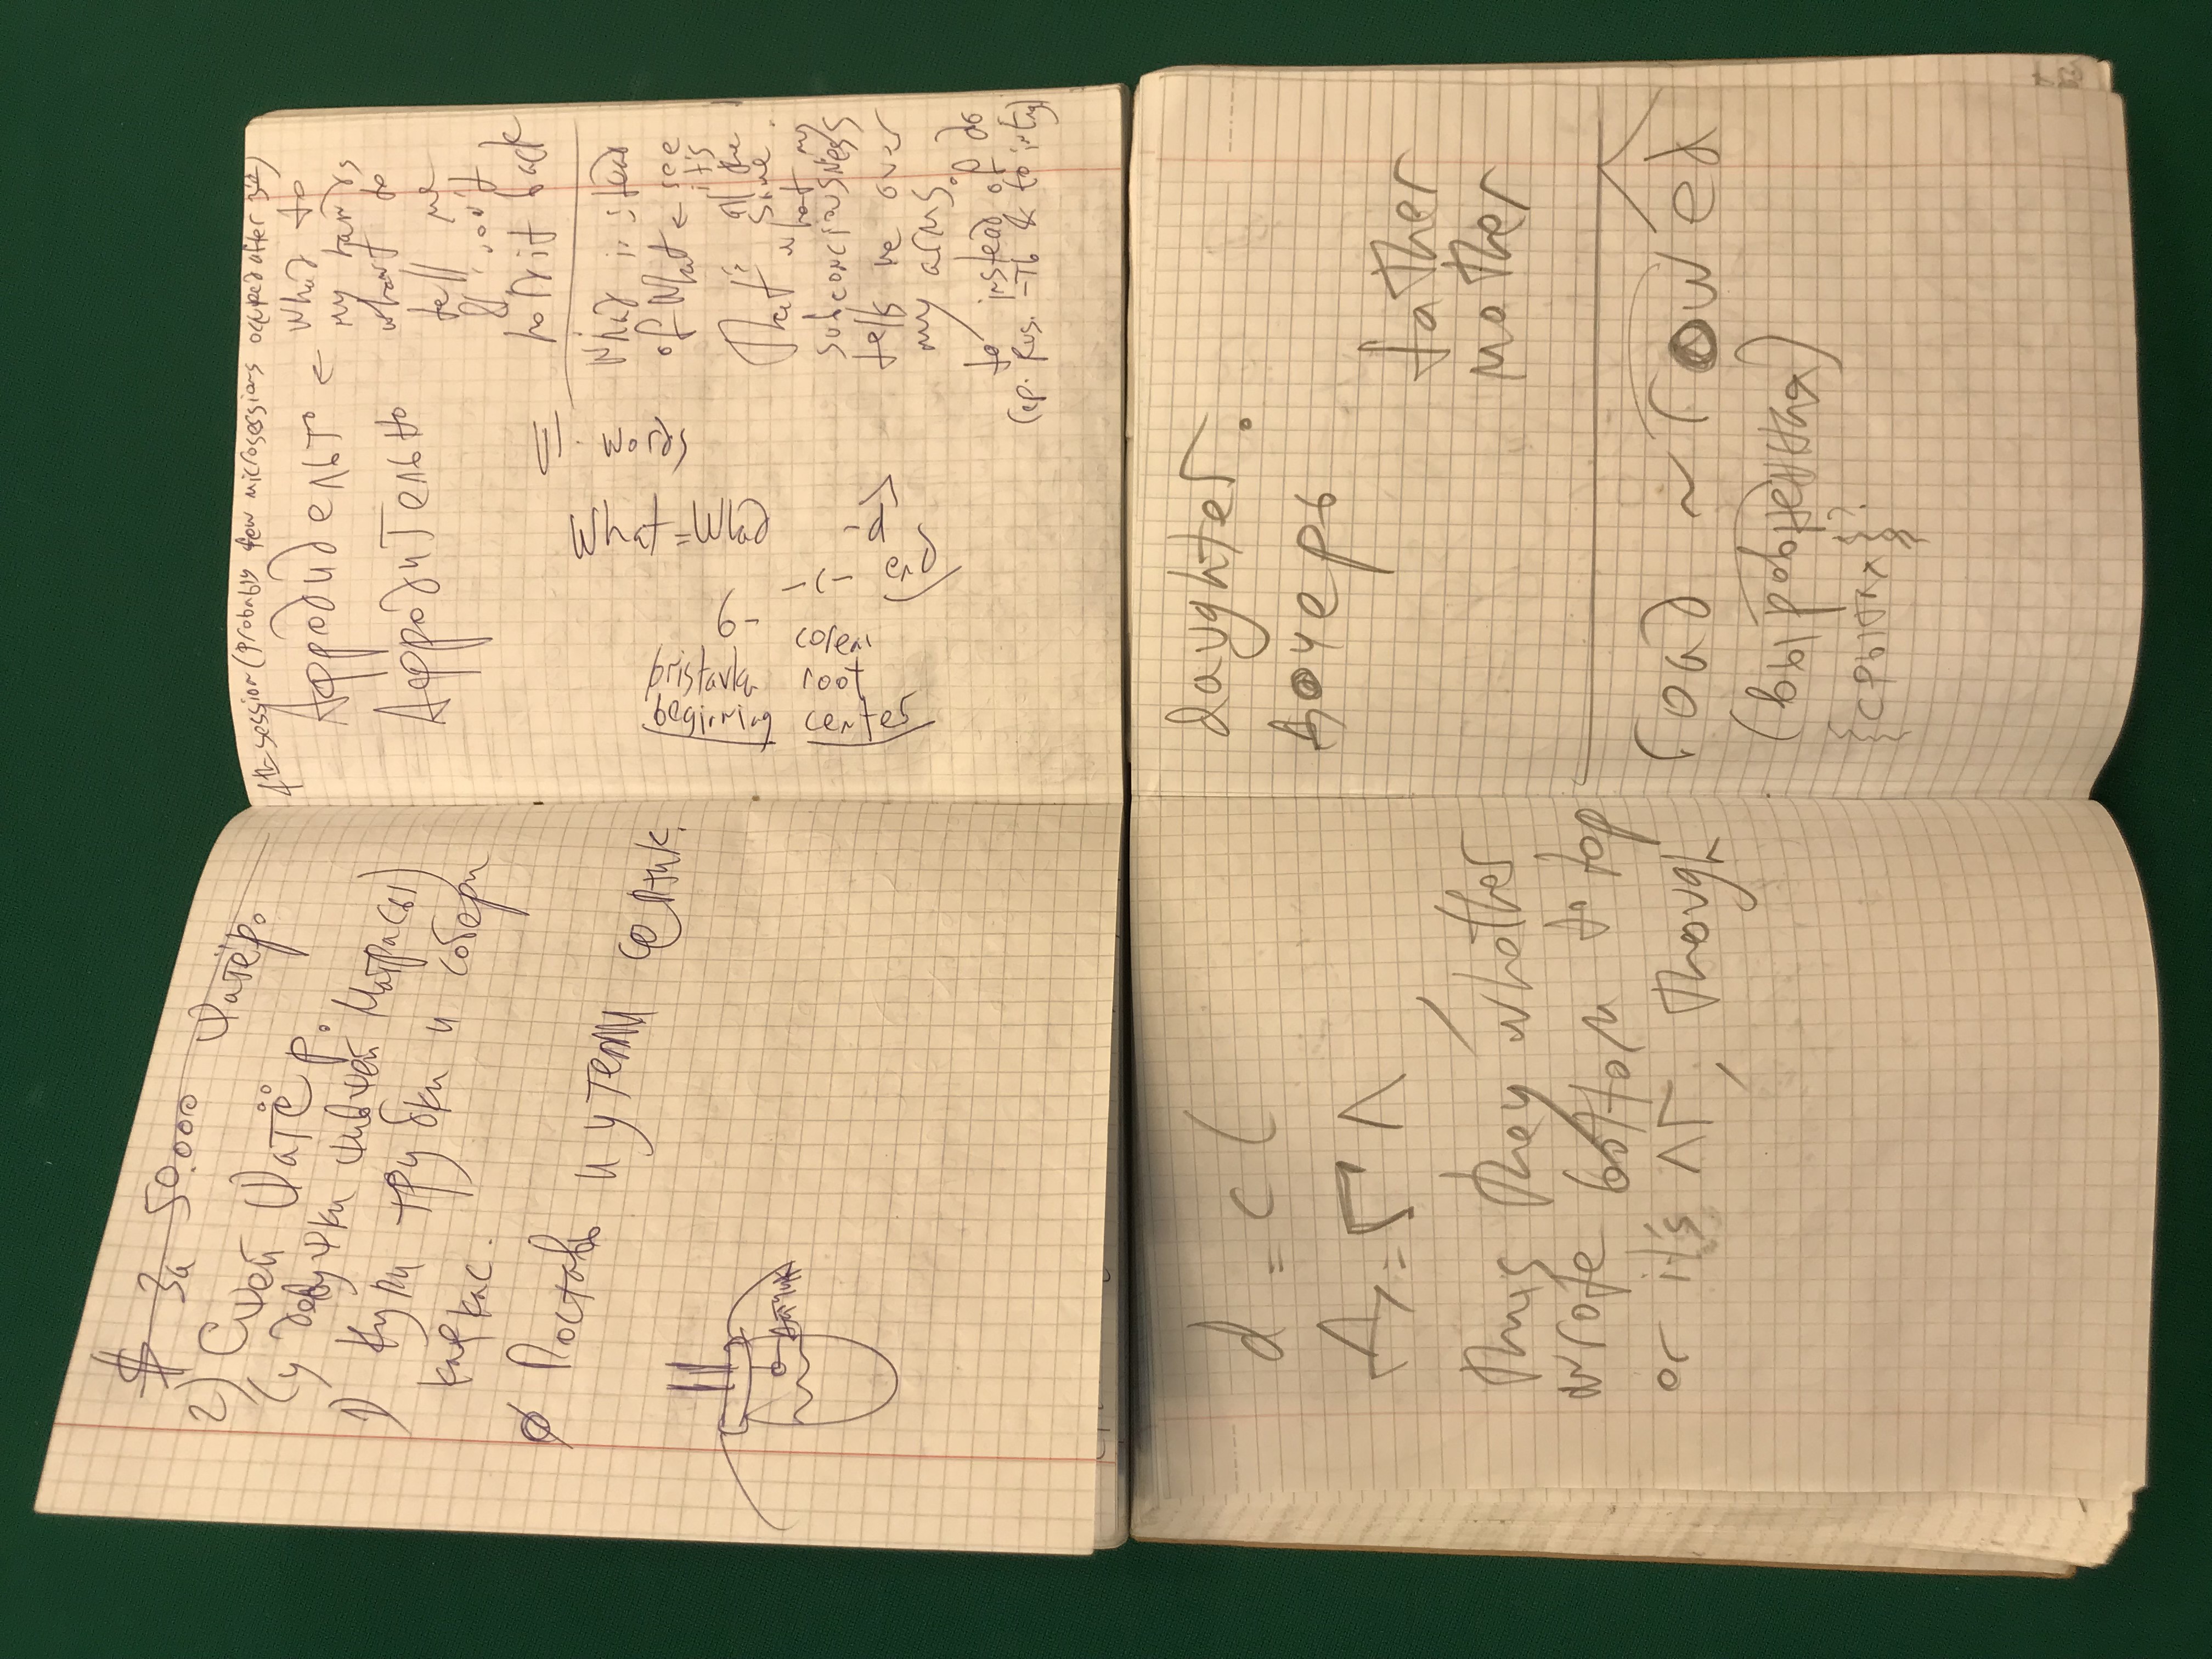 $ За 50.000 Шатёр.
2) Сшей Шатёр.
(у девушки шившей Матрасы)
1) Купи трубки и собери
каркас.
Ø Поставь и утепли септик.
датчик
4th session (probably few microsessions occupied after 3rd)
Аффродидельто ← whad to
my hands
whant to
tell me
& i won't
hold it back
АффродиТельно
Whad instead
of What ← see
it's
all the
same.
That's what my
subconciousness
tells me over
my arms.
to instead of do
(ср. Rus. -ть & to in Eng)
III. words
What = Whad
-d
6- -(- end
coreni
pristavka root
begining center
d = c (
Д = Г Λ,
Thus they whether
wrote bottom to top
or it's ΛΓ, though
daughter.
Дочерь
father
mother
road ~ rowed